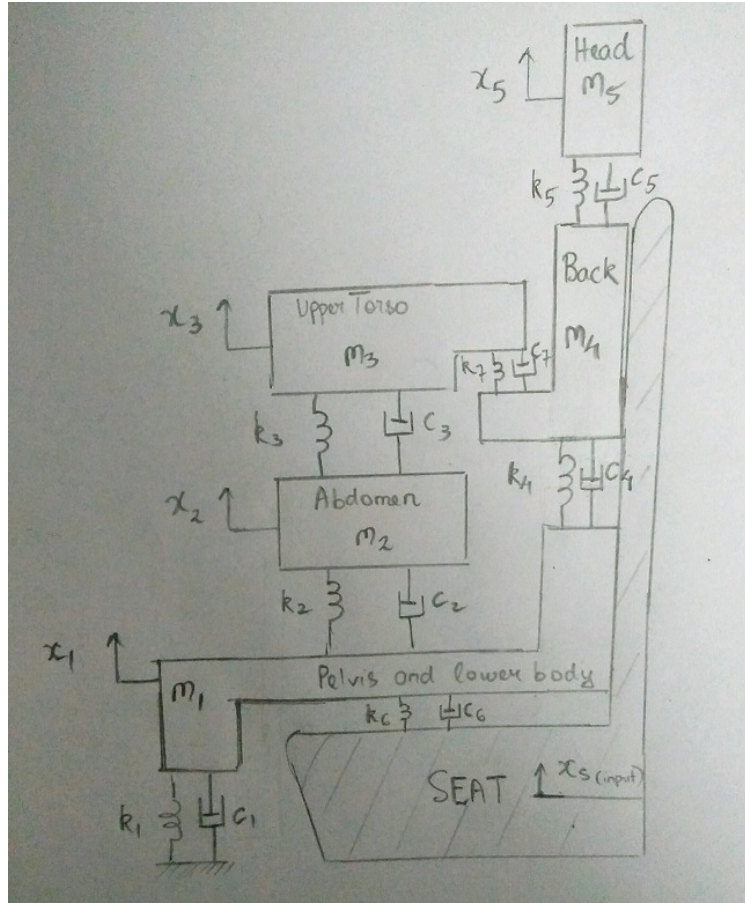 Head
m5
x5
k5
c5
Back
m4
Upper Torso
m3
x3
k7
c7
k3
c3
k4
c4
Abdomen
m2
x2
k2
c2
x1
m1
Pelvis and lower body
k6
c6
SEAT
xs(input)
k1
c1